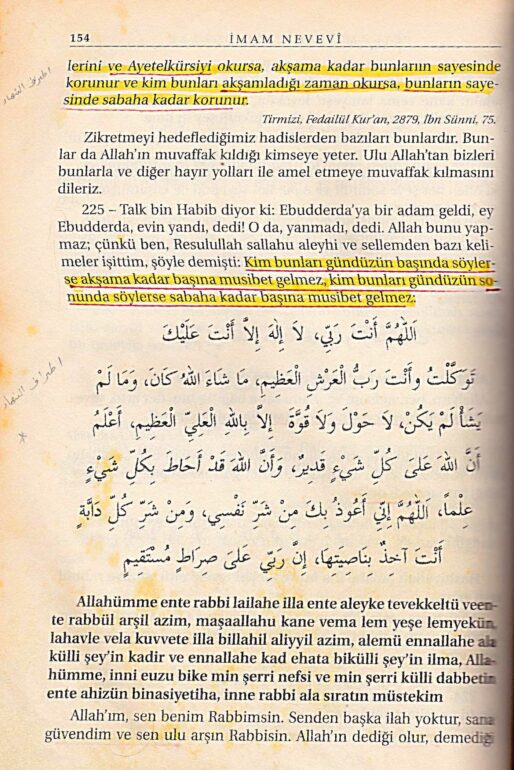 154
İMAM NEVEVÎ
lerini ve Ayetelkürsiyi okursa, akşama kadar bunların sayesinde
korunur ve kim bunları akşamladığı zaman okursa, bunların saye-
sinde sabaha kadar korunur.
Tirmizi, Fedailül Kur'an, 2879, İbn Sünni, 75.
Zikretmeyi hedeflediğimiz hadislerden bazıları bunlardır. Bun-
lar da Allah'ın muvaffak kıldığı kimseye yeter. Ulu Allah'tan bizleri
bunlarla ve diğer hayır yolları ile amel etmeye muvaffak kılmasını
dileriz.
225 – Talk bin Habib diyor ki: Ebudderda'ya bir adam geldi, ey
Ebudderda, evin yandı, dedi! O da, yanmadı, dedi. Allah bunu yap-
maz; çünkü ben, Resulullah sallahu aleyhi ve sellemden bazı keli-
meler işittim, şöyle demişti: Kim bunları gündüzün başında söyler-
se akşama kadar başına musibet gelmez, kim bunları gündüzün so-
nunda söylerse sabaha kadar başına musibet gelmez:
اَللّٰهُمَّ أَنْتَ رَبِّي، لَا إِلٰهَ إِلاَّ أَنْتَ عَلَيْكَ
تَوَكَّلْتُ وأَنْتَ رَبُّ الْعَرْشِ الْعَظِيمِ، مَا شَاءَ اللهُ كَانَ، وَمَا لَمْ
يَشَأْ لَمْ يَكُنْ، لَا حَوْلَ وَلَا قُوَّةَ إِلاَّ بِاللهِ الْعَلِيِّ الْعَظِيمِ، أَعْلَمُ
أَنَّ اللهَ عَلَى كُلِّ شَيْءٍ قَدِيرٌ، وَأَنَّ اللهَ قَدْ أَحَاطَ بِكُلِّ شَيْءٍ
عِلْماً، اَللّٰهُمَّ إِنِّي أَعُوذُ بِكَ مِنْ شَرِّ نَفْسِي، وَمِنْ شَرِّ كُلِّ دَابَّةٍ
أَنْتَ آخِذٌ بِنَاصِيَتِهَا، إِنَّ رَبِّي عَلَى صِرَاطٍ مُسْتَقِيمٍ
Allahümme ente rabbi lailahe illa ente aleyke tevekkeltü veen-
te rabbül arşil azim, maşaallahu kane vema lem yeşe lemyekün,
lahavle vela kuvvete illa billahil aliyyil azim, alemü ennallahe ala
külli şey'in kadir ve ennallahe kad ehata bikülli şey'in ilma, Alla-
hümme, inni euzu bike min şerri nefsi ve min şerri külli dabbetin
ente ahizün binasiyetiha, inne rabbi ala sıratın müstekim
Allah'ım, sen benim Rabbimsin. Senden başka ilah yoktur, sana
güvendim ve sen ulu arşın Rabbisin. Allah'ın dediği olur, demediği
اطراف النهار
اطراف النهار